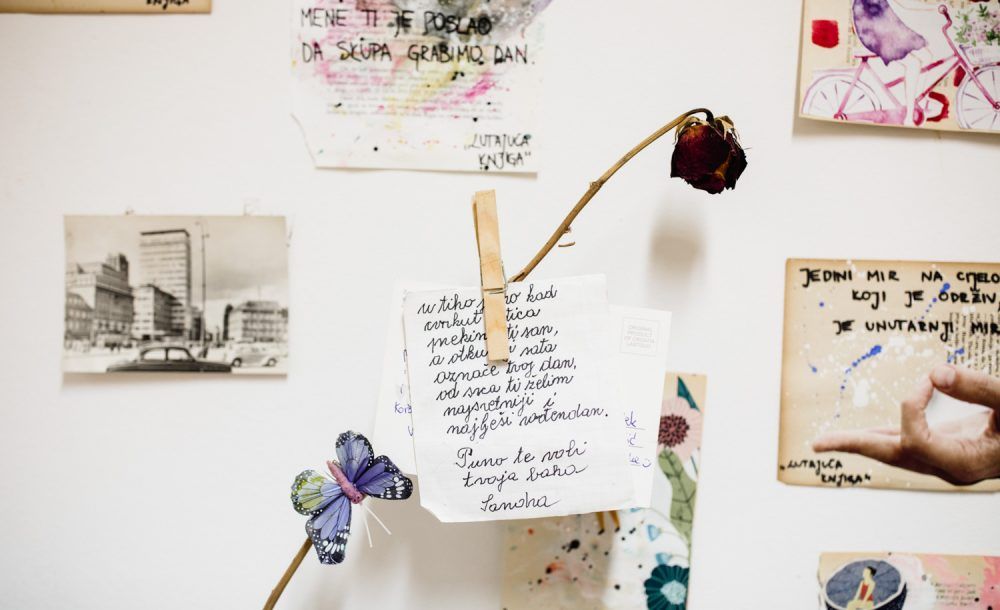 KNJIGA"
MENE TI JE POSLAO
DA SKUPA GRABIMO DAN.
„LUTAJUĆA
KNJIGA"
u tiho jutro kad
cvrkut ptica
prekine ti san,
a otkucaji sata
označe tvoj dan,
od srca ti želim
najsretniji i
najljepši rođendan.
Puno te voli
tvoja baka
Sandra
ORIGINAL
PRODUCT
OF CROATIA
JEDINI MIR NA CIJELO
KOJI JE ODRŽIV,
JE UNUTARNJI MIR
„LUTAJUĆA
KNJIGA"